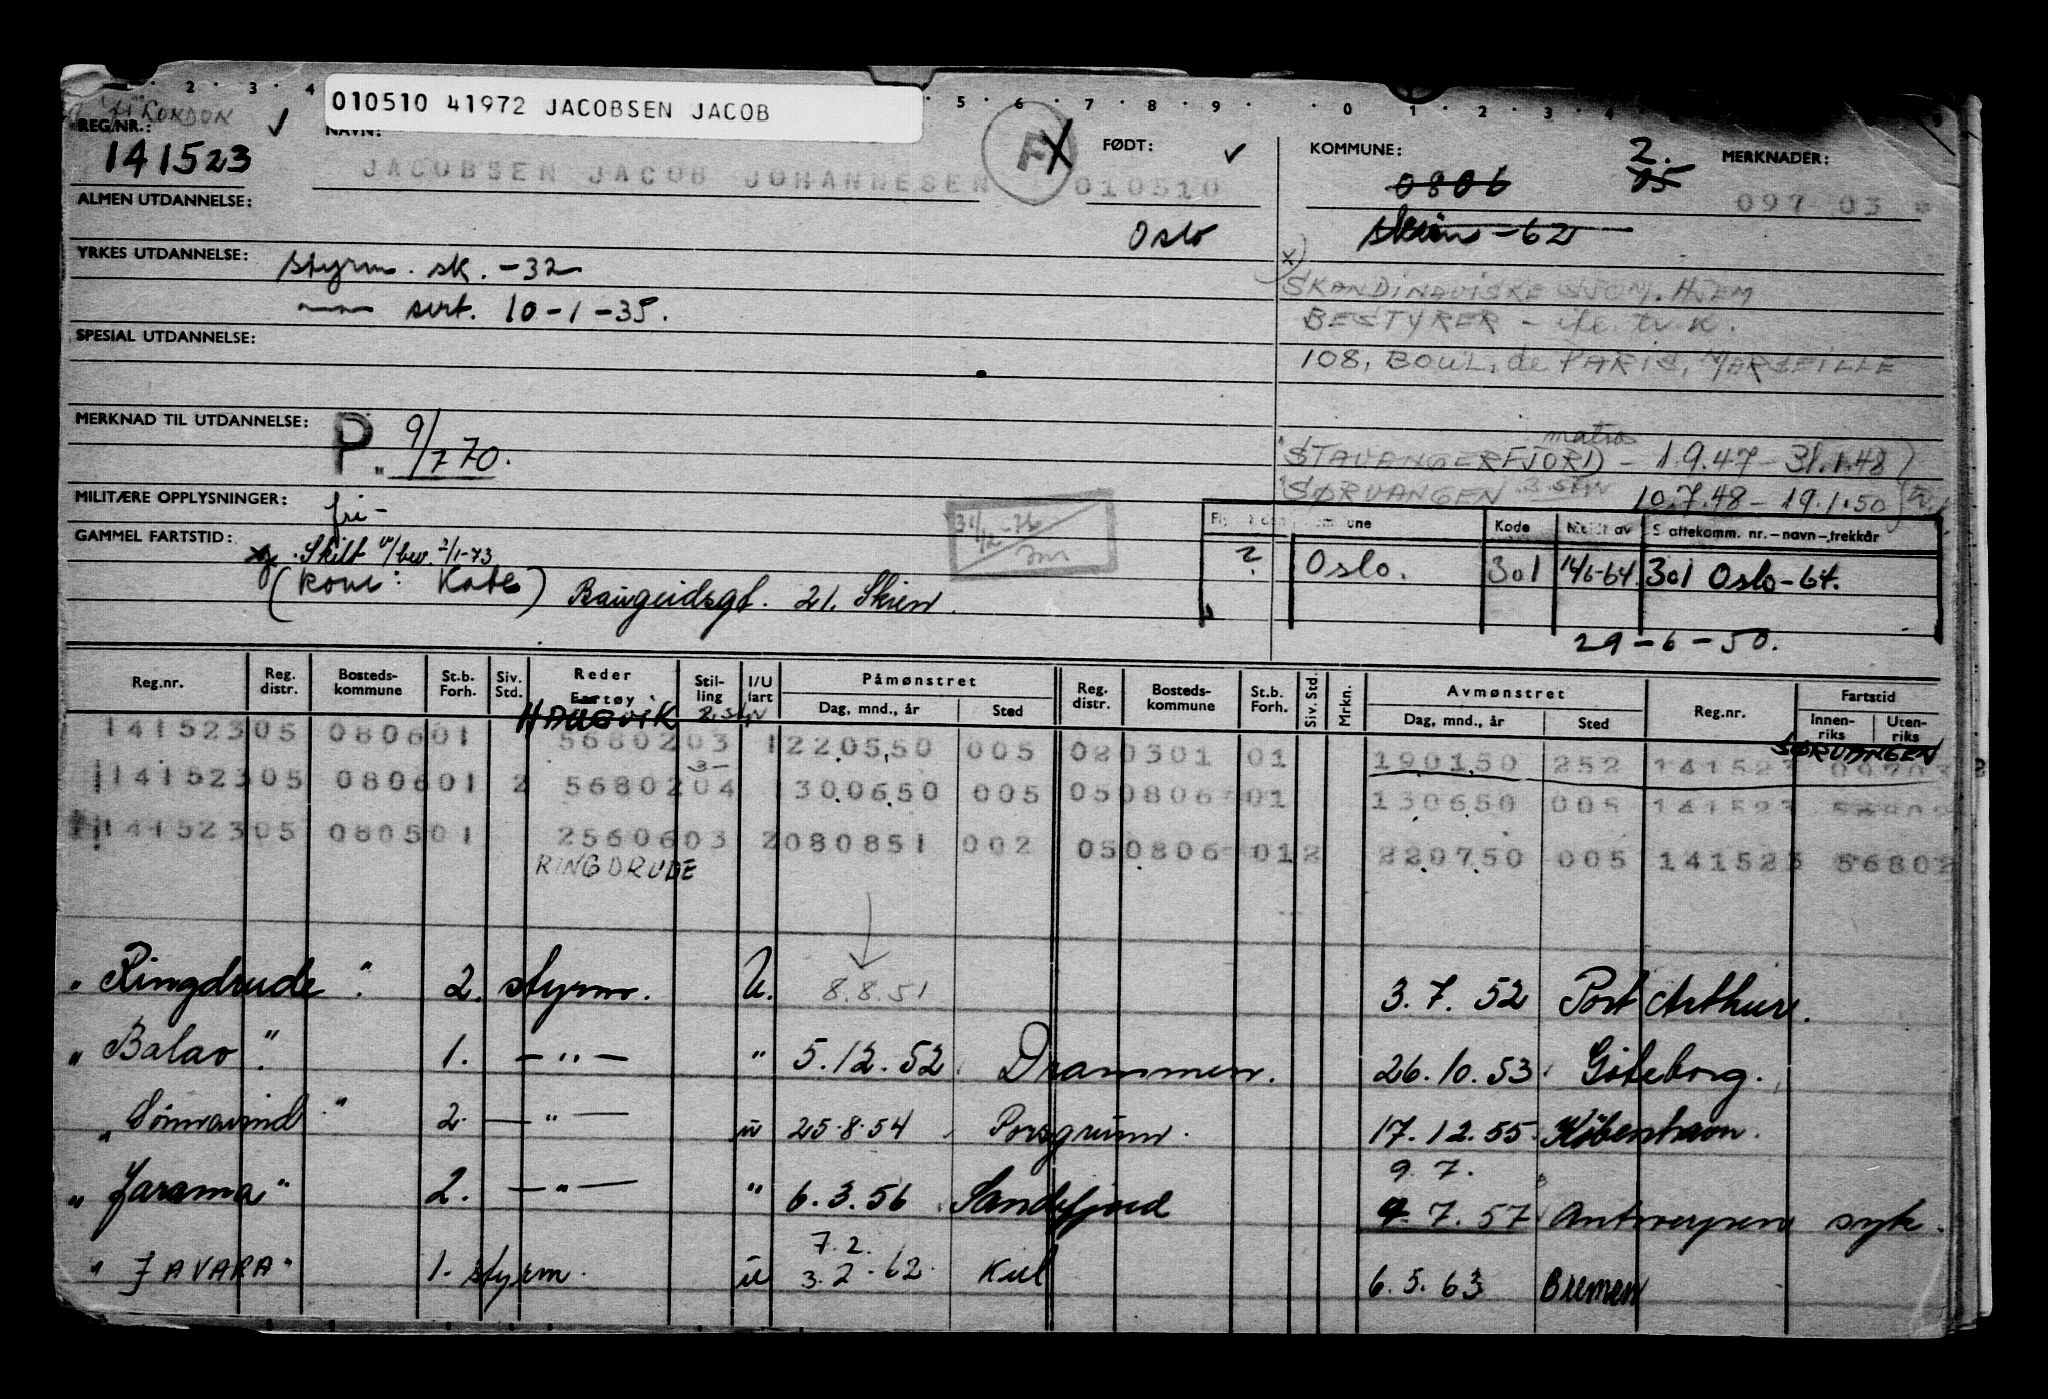 010510 41972 JACOBSEN JACOB
LONDON
REG.NR.:
NAVN:
FØDT:
KOMMUNE:
MERKNADER:
141523
JACOBSEN JACOB JOHANNESEN
010510
0806
2.
05
097 03
ALMEN UTDANNELSE:
Oslo
Skien - 62
YRKES UTDANNELSE:
styrm. sk. - 32
sert. 10-1-35.
x) SKANDINAVISKE SJØM. HJEM
BESTYRER -
108, BOUL. de PARIS, MARSEILLE
SPESIAL UTDANNELSE:
MERKNAD TIL UTDANNELSE:
P. 9/7 70.
matros
STAVANGERFJORD - 1.9.47 - 31.1.48
SØRVANGEN 10.7.48 - 19.1.50
MILITÆRE OPPLYSNINGER:
fri -
GAMMEL FARTSTID:
Skilt v/bev. 2/1-73
(kone: Kate) Baugeidsgt. 21. Skien.
Kode
Meldt av
Skattekomm. nr.-navn-trekkår
2. Oslo. 301 14/6-64. 301 Oslo-64.
29-6-50.
Reg.nr.
Reg. distr.
Bosteds-kommune
St.b. Forh.
Siv. Std.
Reder
Fartøy
Stilling
I/U fart
Påmønstret
Dag, mnd., år
Sted
Reg. distr.
Bosteds-kommune
St.b. Forh.
Siv. Std.
Mrkn.
Avmønstret
Dag, mnd., år
Sted
Reg.nr.
Fartstid
Innen-riks
Uten-riks
HAUGVIK
SØRVANGEN
141523 05 0806 01 56802 03 1 220550 005 02 0301 01 190150 252 141523 09703
141523 05 0806 01 2 56802 04 1 300650 005 05 0806 01 130650 005 141523 56802
141523 05 0805 01 25606 03 2 080851 002 05 0806 01 2 220750 005 141523 56802
RINGDRUDE
" Ringdrude " 2. styrm. U. 8.8.51 3.7.52 Port Arthur.
" Balao " 1. -"- " 5.12.52 Drammen. 26.10.53 Göteborg.
" Sönnavind " 2. -"- u 25.8.54 Porsgrunn. 17.12.55 København.
9.7.
" Jarama " 2. -"- " 6.3.56 Sandefjord 9.7.57 Antwerpen syk.
7.2.
" JAVARA " 1. styrm. u 3.2.62. Kiel 6.5.63 Bremen